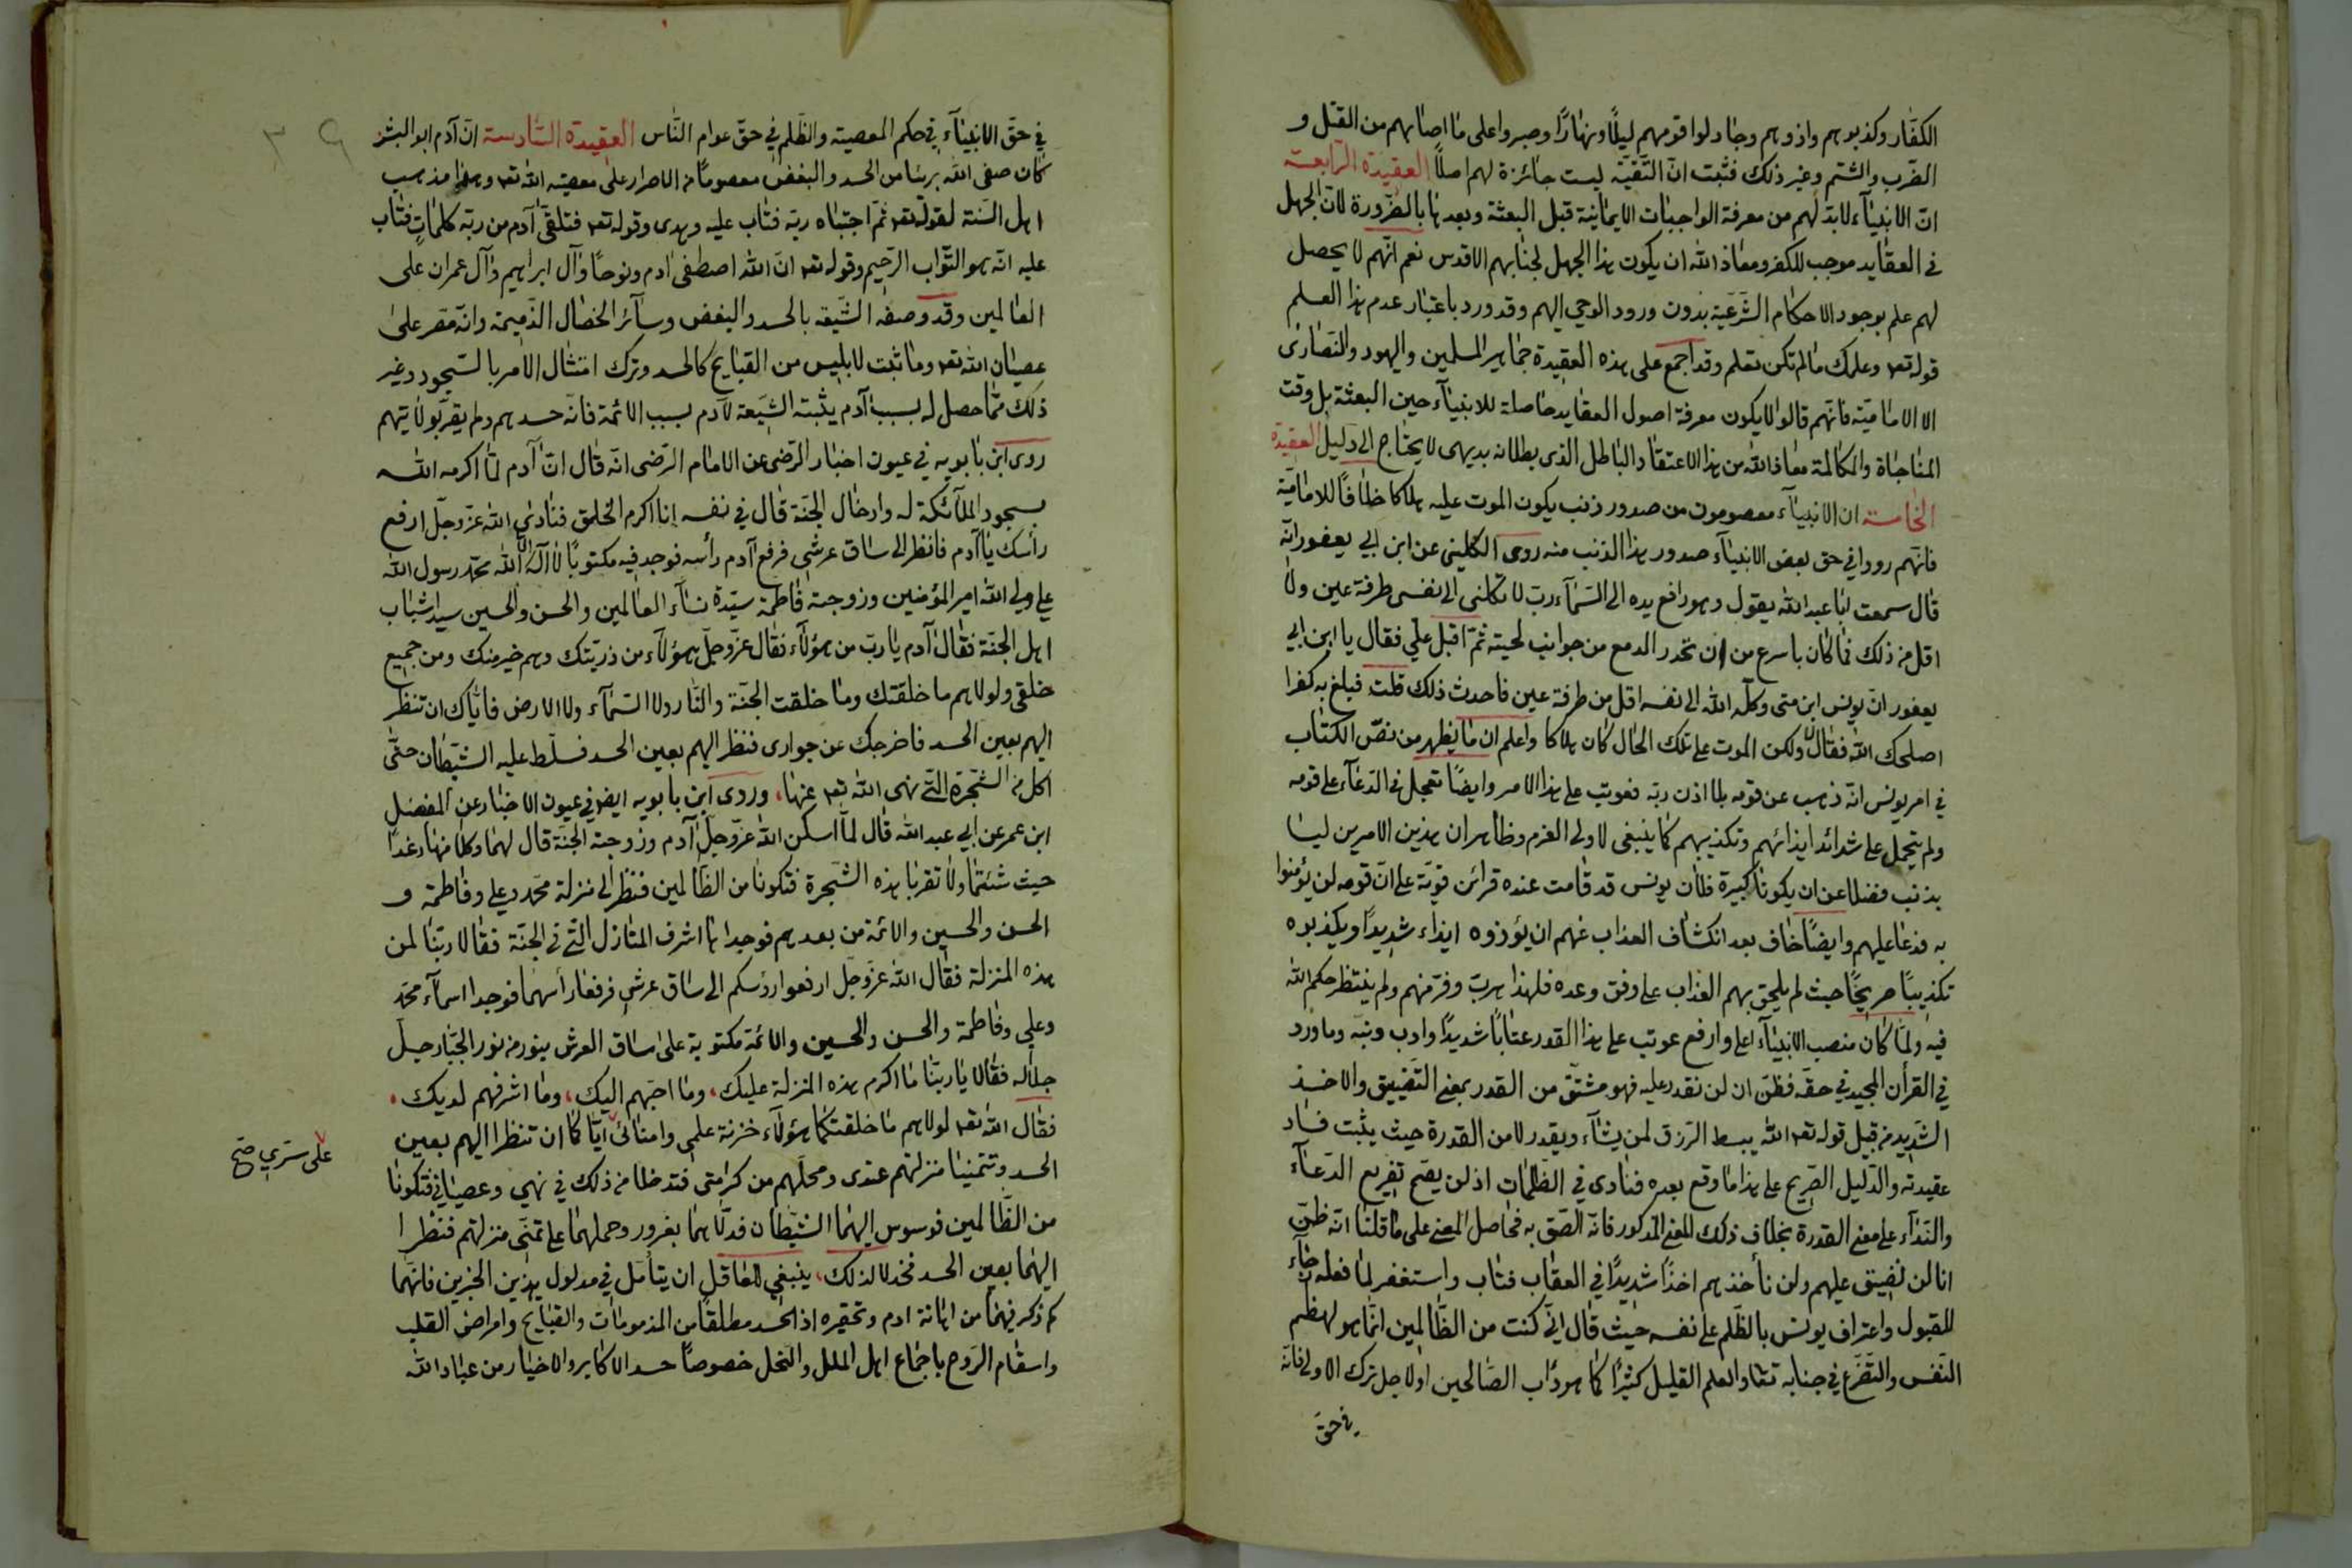 الكفّار وكذبوهم واذوهم وجادلوا قومهم ليلًا ونهارًا وصبروا على ما اصابهم من القتل و
الضرب والشتم وغير ذلك فثبت انّ التقيّة ليست جائزة لهم اصلًا العقيدة الرّابعة
انّ الانبيآء لابدّ لهم من معرفة الواجبات الايمانية قبل البعثة وبعدها بالضّرورة لانّ الجهل
فى العقايد موجب للكفر ومعاذ الله ان يكون هذا الجهل لجنابهم الاقدس نعم انّهم لا يحصل
لهم علم بوجود الاحكام الشّرعيّة بدون ورود الوحي اليهم وقد ورد باعتبار عدم هذا العلم
قوله تعه وعلمك ما لم تكن تعلم وقد اجمع على هذه العقيدة جماهير المسلمين واليهود والنّصارى
الا الاماميّة فانّهم قالوا لا يكون معرفة اصول العقايد حاصلة للانبيآء حين البعثة بل وقت
المناجاة والمكالمة معاذ الله من هذا الاعتقاد الباطل الذى بطلانه بديهى لا يحتاج الى دليل العقيدة
الخامسة ان الانبيآء معصومون من صدور ذنب يكون الموت عليه هلاكا خلافًا للاماميّة
فانّهم رووا في حق بعض الانبيآء صدور هذا الذنب منه روى الكلينى عن ابن ابي يعفور انّه
قال سمعت ابا عبد الله يقول وهو رافع يده الى السّمآء ربّ لا تكلنى الى نفسى طرفة عين ولا
اقل من ذلك فما كان باسرع من ان تحدر الدمع من جوانب لحيته ثمّ اقبل عليّ فقال يا ابن ابي
يعفور انّ يونس ابن متى وكله الله الى نفسه اقل من طرفة عين فاحدث ذلك قلت فبلغ به كفرا
اصلحك الله فقال لا ولكن الموت على تلك الحال كان هلاكا واعلم ان ما يظهر من نصّ الكتاب
في امر يونس انّه ذهب عن قومه بلا اذن ربّه فعوتب على هذا الامر وايضًا تعجل في الدّعآء على قومه
ولم يتحمل على شدائد ايذائهم وتكذيبهم كما ينبغى لاولى العزم وظاهر ان هذين الامرين ليسا
بذنب فضلا عن ان يكونا كبيرة فلان يونس قد قامت عنده قرائن قويّة على انّ قومه لن يؤمنوا
به فدعا عليهم وايضًا خاف بعد انكشاف العذاب عنهم ان يؤذوه ايذاء شديدًا ويكذبوه
تكذيبًا صريحًا حيث لم يلحق بهم العذاب على وفق وعده فلهذا هرب وفرّ منهم ولم ينتظر حكم الله
فيه ولمّا كان منصب الانبيآء اعلى وارفع عوتب على هذا القدر عتابًا شديدًا وادب ونبّه وما ورد
في القرأن المجيد في حقّه فظنّ ان لن نقدر عليه فهو مشتقّ من القدر بمعنى التّضييق والاخذ
الشّديد من قبيل قوله تعه الله يبسط الرّزق لمن يشآء ويقدر لا من القدرة حيث يثبت فساد
عقيدته والدّليل الصّريح على هذا ما وقع بعده فنادى في الظّلمات اذ لن يصح تفريع الدّعآء
والنّدآء على معنى القدرة بخلاف ذلك المعنى المذكور فانّه الصّق به فحاصل المعنى على ما قلنا انّه ظنّ
انا لن نضيق عليهم ولن نأخذهم اخذًا شديدًا في العقاب فتاب واستغفر لما فعله رجآء
للقبول واعتراف يونس بالظّلم على نفسه حيث قال انّي كنت من الظّالمين انّما هو لهضم
النّفس والتّضرّع في جنابه تعا والعلم القليل كثيرًا كما هو دأب الصّالحين او لاجل ترك الاولى فانّه
في حقّ
في حقّ الانبيآء في حكم المعصية والظّلم في حقّ عوام النّاس العقيدة السّادسة انّ آدم ابو البشر
كان صفى الله بريئا من الحسد والبغض معصومًا من الاصرار على معصية الله تعه وهذا مذهب
اهل السّنة لقوله تعه ثمّ اجتباه ربّه فتاب عليه وهدى وقوله تعه فتلقّى آدم من ربّه كلمات فتاب
عليه انّه هو التّوّاب الرّحيم وقوله تعه انّ الله اصطفى ادم ونوحًا وآل ابراهيم وآل عمران على
العالمين وقد وصفه الشّيعة بالحسد والبغض وسائر الخصال الذّميمة وانّه مصر على
عصيان الله تعه وما ثبت لابليس من القبايح كالحسد وترك امتثال الامر بالسّجود وغير
ذلك ممّا حصل له بسبب آدم يثبته الشّيعة لآدم بسبب الائمة فانّه حسدهم ولم يقر بولايتهم
روى ابن بابويه في عيون اخبار الرّضى عن الامام الرّضى انّه قال انّ آدم لمّا اكرمه الله
بسجود الملآئكة له وادخال الجنّة قال في نفسه انا اكرم الخلق فنادى الله عزّوجلّ ارفع
رأسك يا آدم فانظر الى ساق عرشى فرفع آدم رأسه فوجد فيه مكتوبًا لا اله الّا الله محمّد رسول الله
علي ولي الله امير المؤمنين وزوجته فاطمة سيّدة نسآء العالمين والحسن والحسين سيدا شباب
اهل الجنّة فقال آدم يا ربّ من هؤلآء فقال عزّ وجلّ هؤلآء من ذريّتك وهم خير منك ومن جميع
خلقى ولولاهم ما خلقتك وما خلقت الجنّة والنّار ولا السّمآء ولا الارض فايّاك ان تنظر
اليهم بعين الحسد فاخرجك عن جوارى فنظر اليهم بعين الحسد فسلّط عليه الشّيطان حتّى
اكل من الشّجرة التّى نهى الله تعه عنها، وروى ابن بابويه ايضا في عيون الاخبار عن المفضل
ابن عمر عن ابي عبد الله قال لمّا اسكن الله عزّوجلّ آدم وزوجته الجنّة قال لهما وكلا منها رغدًا
حيث شئتما ولا تقربا هذه الشّجرة فتكونا من الظّالمين فنظر الى منزلة محمّد وعلي وفاطمة و
الحسن والحسين والائمة من بعدهم فوجداها اشرف المنازل التّى فى الجنّة فقالا ربّنا لمن
هذه المنزلة فقال الله عزّوجلّ ارفعوا رؤسكم الى ساق عرشى فرفعا رأسهما فوجدا اسمآء محمّد
وعلي وفاطمة والحسن والحسين والائمة مكتوبة على ساق العرش بنور من نور الجبّار جلّ
جلاله فقالا يا ربّنا ما اكرم هذه المنزلة عليك، وما احبّهم اليك، وما اشرفهم لديك،
فقال الله تعه لولاهم ما خلقتكما هؤلآء خزنة علمى وامنائى ايّاكما ان تنظرا اليهم بعين
على سرّي صح
الحسد وتتمنيا منزلتهم عندى ومحلّهم من كرامتى فتدخلا من ذلك في نهيى وعصيانى فتكونا
من الظّالمين فوسوس اليهما الشّيطان فدلّاهما بغرور وحملهما على تمنّى منزلتهم فنظرا
اليهما بعين الحسد فخذلا لذلك، ينبغي للعاقل ان يتأمّل في مدلول هذين الخبرين فانّهما
كم ذكر فيهما من اهانة ادم وتحقيره اذ الحسد مطلقًا من المذمومات والقبايح وامراض القلب
واسقام الرّوح باجماع اهل الملل والنّحل خصوصًا حسد الاكابر والاخيار من عباد الله